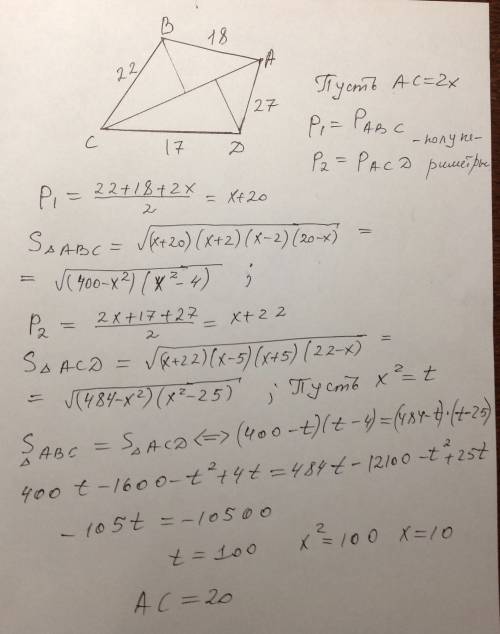 B
18
A
22
27
C
17
D
Пусть AC=2x
P₁ = P_ABC
- полупе-
P₂ = P_ACD риметры
P₁ = (22+18+2x)/2 = x+20
S△ABC = √((x+20)(x+2)(x-2)(20-x)) =
= √((400-x²)(x²-4)) ;
P₂ = (2x+17+27)/2 = x+22
S△ACD = √((x+22)(x-5)(x+5)(22-x)) =
= √((484-x²)(x²-25)) ; Пусть x²=t
S△ABC = S△ACD <=> (400-t)(t-4)=(484-t)·(t-25)
400t-1600-t²+4t=484t-12100-t²+25t
-105t = -10500
t=100 x²=100 x=10
AC=20